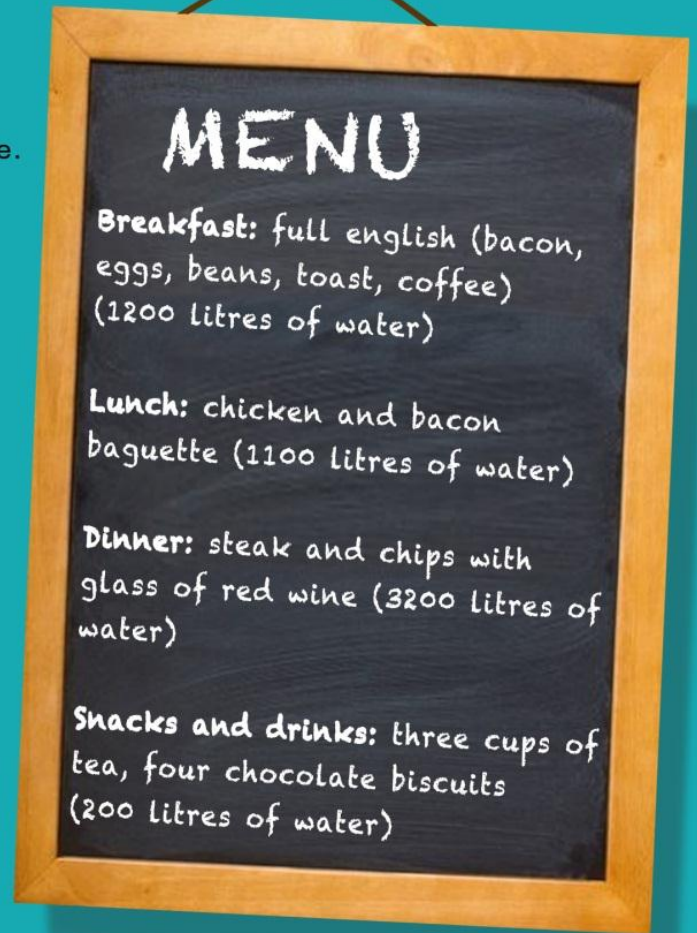 e.
MENU
Breakfast: full english (bacon,
eggs, beans, toast, coffee)
(1200 litres of water)
Lunch: chicken and bacon
baguette (1100 litres of water)
Dinner: steak and chips with
glass of red wine (3200 litres of
water)
Snacks and drinks: three cups of
tea, four chocolate biscuits
(200 litres of water)